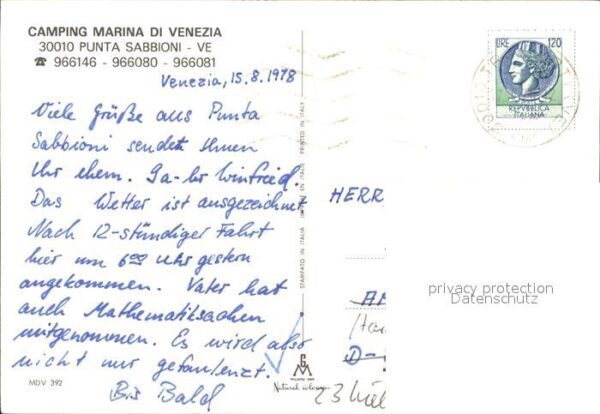 CAMPING MARINA DI VENEZIA
30010 PUNTA SABBIONI - VE
☎ 966146 - 966080 - 966081
Venezia, 15.8.1978
Viele Grüße aus Punta
Sabbioni sendet Ihnen
Ihr ehem. Winfried.
Das Wetter ist ausgezeichnet
Nach 12-stündiger Fahrt
hier um 6⁰⁰ Uhr gestern
angekommen. Vater hat
auch Mathematiksachen
mitgenommen. Es wird also
nicht nur gefaulenzt.
Bis Bald
MDV 392
STAMPATO IN ITALIA IMPRIMÉ EN ITALIE PRINTED IN ITALY
LIRE 120
REPVBBLICA
ITALIANA
HERR
privacy protection
Datenschutz
D-
23 Kiel